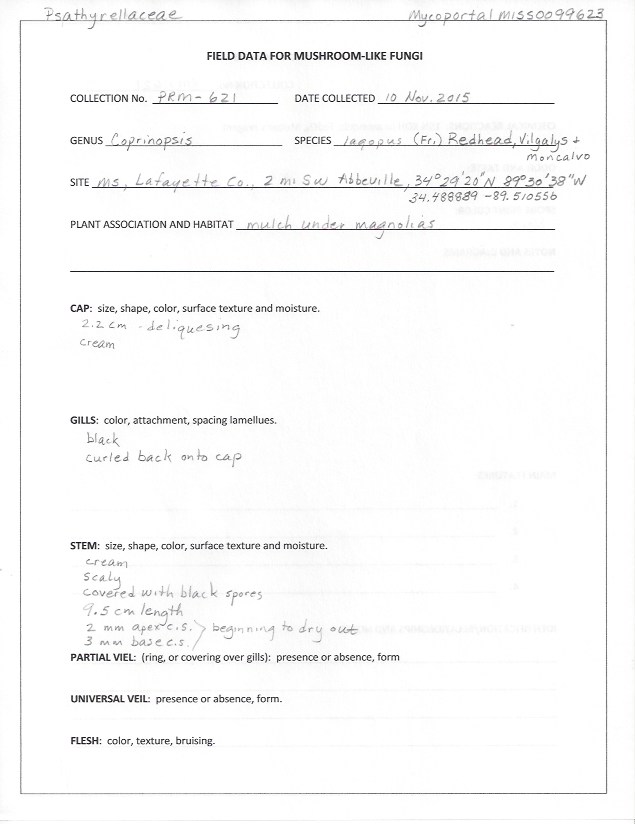 Psathyrellaceae Mycoportal MISS0099623
FIELD DATA FOR MUSHROOM-LIKE FUNGI
COLLECTION No. PRM-621 DATE COLLECTED 10 Nov. 2015
GENUS Coprinopsis SPECIES lagopus (Fr.) Redhead, Vilgalys +
Moncalvo
SITE MS, Lafayette Co., 2 mi SW Abbeville, 34°29'20"N 89°30'38"W
34.488889 -89.510556
PLANT ASSOCIATION AND HABITAT mulch under magnolias
CAP: size, shape, color, surface texture and moisture.
2.2 cm - deliquesing
cream
GILLS: color, attachment, spacing lamellues.
black
curled back onto cap
STEM: size, shape, color, surface texture and moisture.
cream
scaly
covered with black spores
9.5 cm length
2 mm apex c.s. > beginning to dry out
3 mm base c.s.
PARTIAL VIEL: (ring, or covering over gills): presence or absence, form
UNIVERSAL VEIL: presence or absence, form.
FLESH: color, texture, bruising.